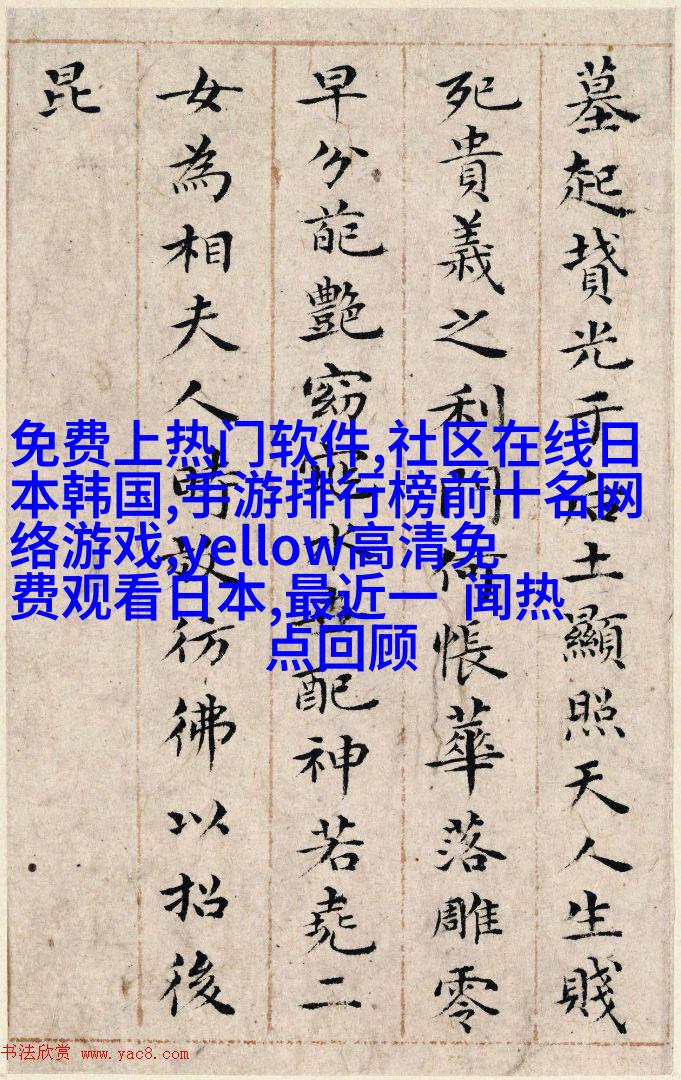 墓起墳光于后土顯照天人生賤
死貴義之利門何悵華落雕零
早分葩艷窈窕水世配神若堯二
女為相夫人時效彷彿以招後
昆
免费上热门软件,社区在线日
本韩国,手游排行榜前十名网
络游戏,yellow高清免
费观看日本,最近一 闻热
点回顾
书法欣赏 www.yac8.com